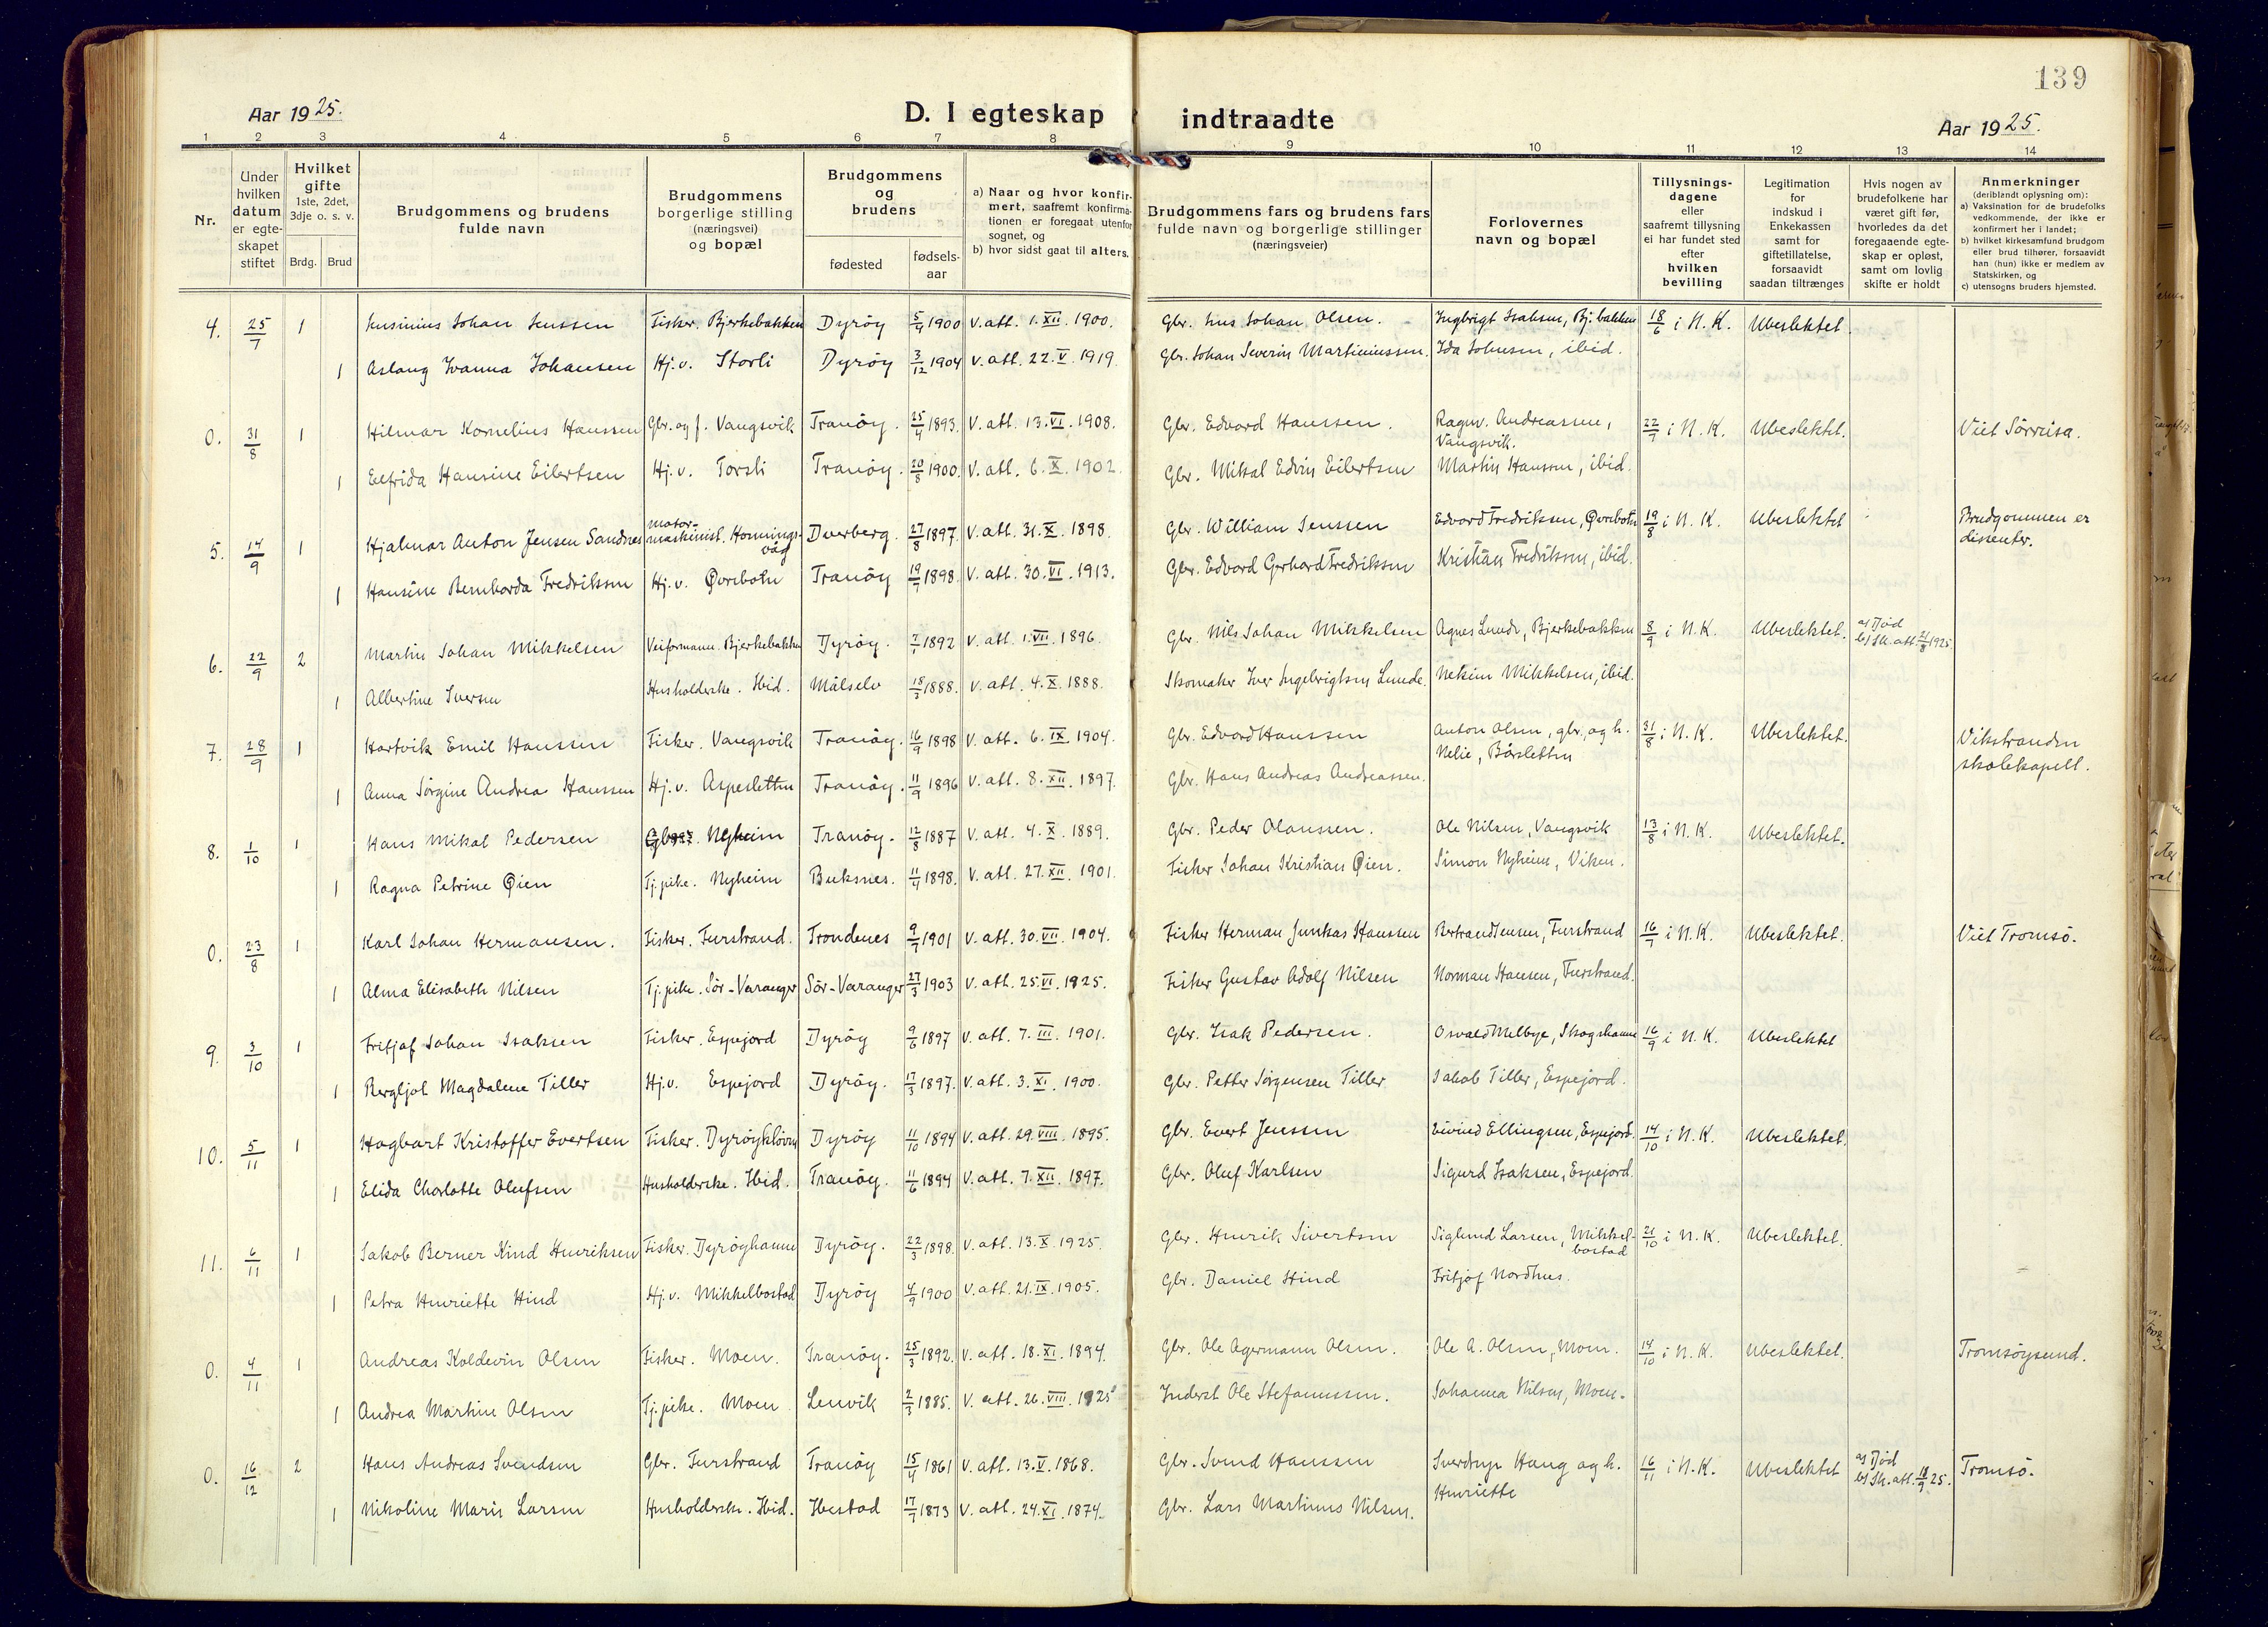 139
Aar 1925.
D. I egteskap indtraadte
Aar 1925.
1 2 3 4 5 6 7 8 9 10 11 12 13 14
Nr.
Under hvilken datum er egteskapet stiftet
Hvilket gifte 1ste, 2det, 3dje o. s. v.
Brdg. Brud
Brudgommens og brudens fulde navn
Brudgommens borgerlige stilling (næringsvei) og bopæl
Brudgommens og brudens
fødested
fødsels-aar
a) Naar og hvor konfirmert, saafremt konfirmationen er foregaat utenfor sognet, og
b) hvor sidst gaat til alters.
Brudgommens fars og brudens fars fulde navn og borgerlige stillinger (næringsveier)
Forlovernes navn og bopæl
Tillysnings-dagene eller saafremt tillysning ei har fundet sted efter hvilken bevilling
Legitimation for indskud i Enkekassen samt for giftetillatelse, forsaavidt saadan tiltrænges
Hvis nogen av brudefolkene har været gift før, hvorledes da det foregaaende egteskap er opløst, samt om lovlig skifte er holdt
Anmerkninger (deriblandt oplysning om):
a) Vaksination for de brudefolks vedkommende, der ikke er konfirmert her i landet;
b) hvilket kirkesamfund brudgom eller brud tilhører, forsaavidt han (hun) ikke er medlem av Statskirken, og
c) utensogns bruders hjemsted.
4. 25/7 1 Johan Jenssen Fisker. Bjerkebakken Dyrøy 5/4 1900 V. att. 1. XII. 1900. Gbr. Jens Johan Olsen. Ingbrigt Isaksen, Bj. bakken 18/6 i N. K. Ubeslektet.
1 Aslaug Ivanna Johansen Hj. v. Storli Dyrøy 3/12 1904 V. att. 22. V. 1919. Gbr. Johan Severin Martinussen. Ida Johnsen, ibid.
0. 31/8 1 Hilmar Kornelius Hanssen Gbr. og f. Vangsvik Tranøy. 25/4 1893. V. att. 13. VI. 1908. Gbr. Edvard Hanssen. Ragnv. Andreassen, Vangsvik. 22/7 i N. K. Ubeslektet. Viet Sørreisa.
1 Elfrida Hansine Eilertsen Hj. v. Torsli Tranøy. 20/8 1900. V. att. 6. X. 1902. Gbr. Mikal Edvin Eilertsen Martin Hanssen, ibid.
5. 14/9 1 Hjalmar Anton Jensen Sandnes motor-maskinist. Honningsvåg Dverberg. 27/8 1897. V. att. 31. X. 1898. Gbr. William Jenssen Edvard Fredriksen, Øvrebotn 19/8 i N. K. Ubeslektet Brudgommen er dissenter.
1 Hansine Bernharda Fredriksen Hj. v. Øvrebotn Tranøy 19/7 1898. V. att. 30. VI. 1913. Gbr. Edvard Gerhard Fredriksen Kristian Fredriksen, ibid.
6. 22/9 2 Martin Johan Mikkelsen Veiformann. Bjerkebakken Dyrøy. 7/1 1892 V. att. 1. VII. 1896. Gbr. Nils Johan Mikkelsen Agnes Lunde, Bjerkebakken 8/9 i N. K. Ubeslektet. a) Død b) Sk. att. 21/8 1925.
1 Albertine Iversen Husholderske. Ibid. Målselv 18/3 1888. V. att. 4. X. 1888. Skomaker Iver Ingebrigtsen Lunde. Mikkelsen, ibid.
7. 28/9 1 Hartvik Emil Hanssen Fisker. Vangsvik Tranøy. 16/7 1898 V. att. 6. IX. 1904. Gbr. Edvard Hanssen Anton Olsen, gbr., og h. Nelie, Bårsletten 31/8 i N. K. Ubeslektet. Vikstranden skolekapell.
1 Anna Jørgine Andrea Hanssen Hj. v. Aspesletten Tranøy. 11/9 1896 V. att. 8. XII. 1897. Gbr. Hans Andreas Andreassen.
8. 1/10 1 Hans Mikal Pedersen Nyheim Tranøy. 12/8 1887 V. att. 4. X. 1889. Gbr. Peder Olaussen. Ole Nilsen, Vangsvik 13/8 i N. K. Ubeslektet.
1 Ragna Petrine Øien Tj. pike. Nyheim Buksnes. 11/4 1898. V. att. 27. XII. 1901. Fisker Johan Kristian Øien. Simon Nyheim, Viken.
0. 23/8 1 Karl Johan Hermansen. Fisker. Furstrand. Trondenes 9/7 1901 V. att. 30. VII. 1904. Fisker Herman Junkas Hanssen Bertrand Jensen, Furstrand 16/7 i N. K. Ubeslektet. Viet Tromsø.
1 Alma Elisabeth Nilsen Tj. pike. Sør-Varanger Sør-Varanger 27/3 1903 V. att. 25. VI. 1925. Fisker Gustav Adolf Nilsen Norman Hansen, Furstrand.
9. 3/10 1 Fritjof Johan Isaksen Fisker. Espejord Dyrøy 9/6 1897 V. att. 7. III. 1901. Gbr. Isak Pedersen. Osvald Melbye, Skogshamn 16/9 i N. K. Ubeslektet
1 Bergljot Magdalene Tiller Hj. v. Espejord Dyrøy. 17/3 1897. V. att. 3. XI. 1900. Gbr. Petter Jørgensen Tiller Jakob Tiller, Espejord.
10. 5/11 1 Hagbart Kristoffer Evertsen Fisker. Dyrøykløven Dyrøy 11/10 1894 V. att. 29. VIII. 1895. Gbr. Evert Jenssen Eivind Ellingsen, Espejord. 14/10 i N. K. Ubeslektet.
1 Elida Charlotte Olufsen Husholderske. Ibid. Tranøy. 11/6 1894 V. att. 7. XII. 1897. Gbr. Oluf Karlsen Sigurd Isaksen, Espejord.
11. 6/11 1 Jakob Berner Kind Henriksen Fisker. Dyrøyhamn Dyrøy. 22/3 1898. V. att. 13. X. 1925. Gbr. Henrik Sivertsen Siglund Larsen, Mikkelbostad 21/10 i N. K. Ubeslektet.
1 Petra Henriette Hind Hj. v. Mikkelbostad Dyrøy 4/9 1900 V. att. 21. IX. 1905. Gbr. Daniel Hind Fritjof Nordhus.
0. 4/11 1 Andreas Koldevin Olsen Fisker. Moen. Tranøy. 25/3 1892. V. att. 18. XI. 1894. Gbr. Ole Agermann Olsen. Ole A. Olsen, Moen. 14/10 i N. K. Ubeslektet. Tromsøysund.
1 Andrea Martine Olsen Tj. pike. Moen Lenvik 2/3 1885. V. att. 26. VIII. 1925 Inderst Ole Stefanussen. Johanna Nilsen, Moen.
0. 16/12 2 Hans Andreas Svendsen Gbr. Furstrand Tranøy 15/4 1861 V. att. 13. V. 1868. Gbr. Svend Hanssen Sverdrup Haug og h. Henriette 16/11 i N. K. Ubeslektet a) Død b) Sk. att. 18/9 25. Tromsø.
1 Nikoline Marie Larsen Husholderske. Ibid. Ibestad 17/7 1873 V. att. 24. XI. 1874. Gbr. Lars Martinus Nilsen.